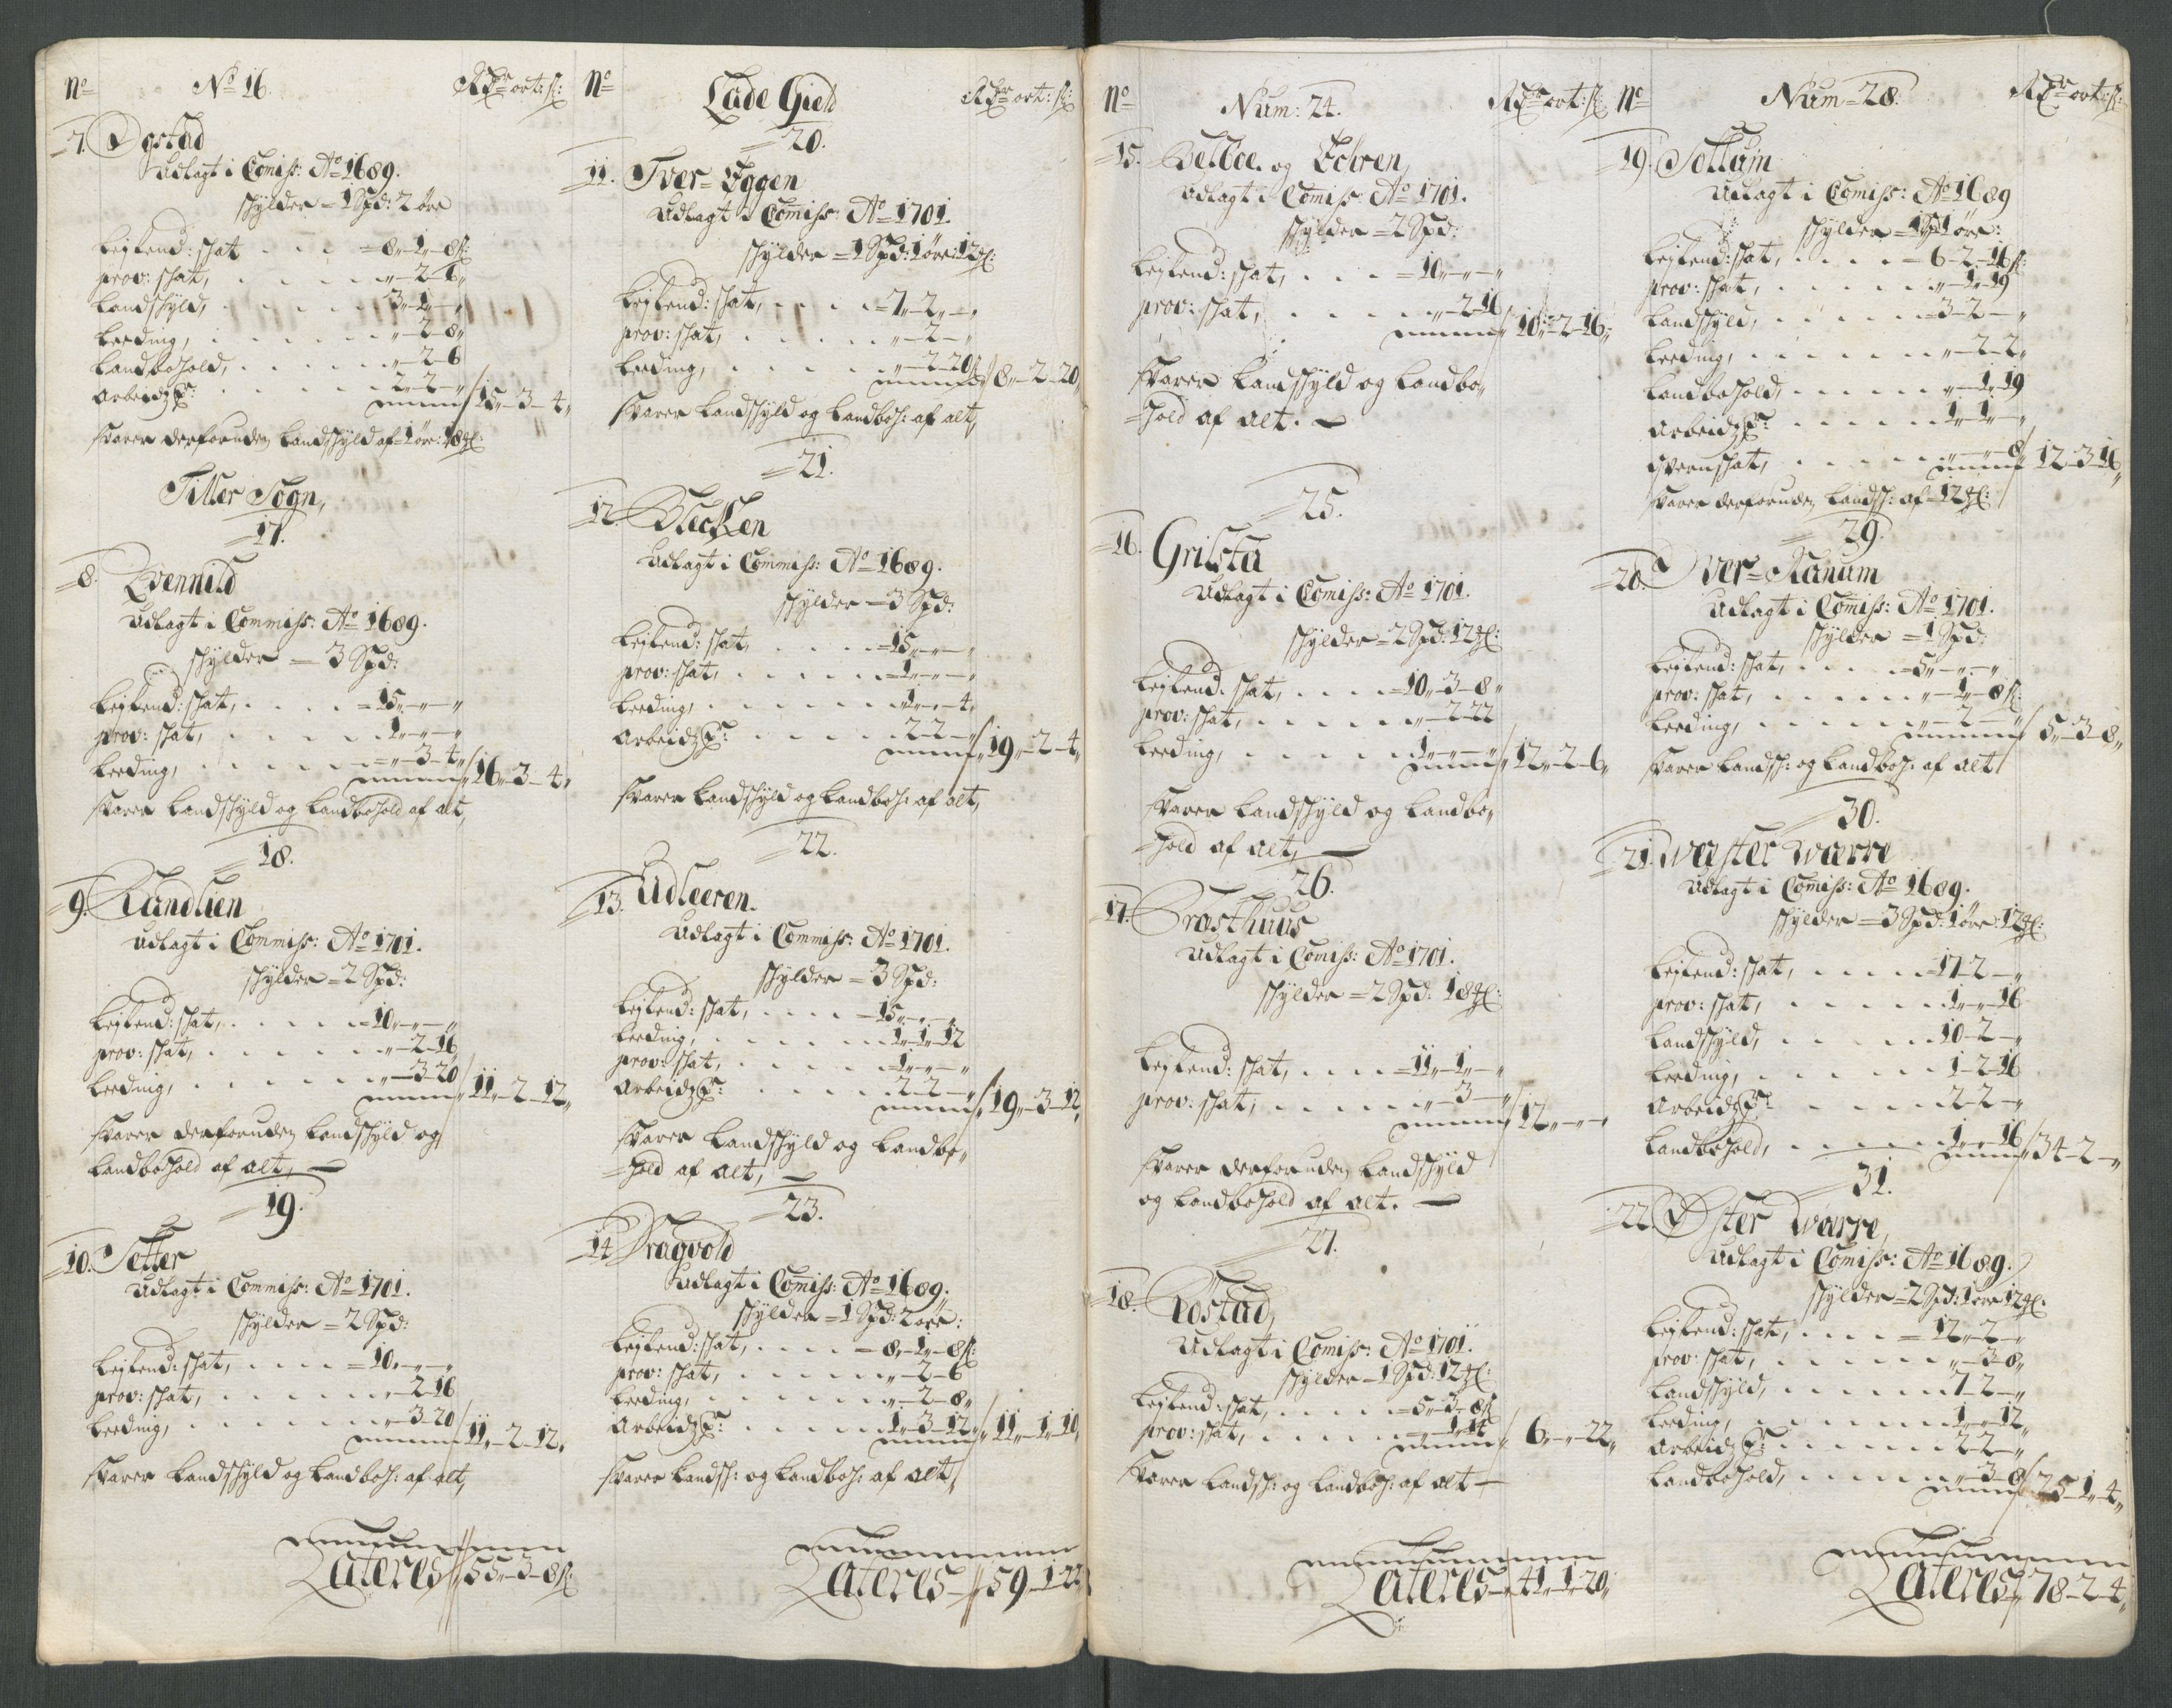 No No 16. Rdr ort: s:
7. Øgstad
Udlagt i Comiss: Ao 1689.
skylder = 1 Spd: 2 øre
Leilend: skat . . . = 8„-1„-8s:
prov: skat, . . . „-2-6„
Landskyld, . . . 3„-1-„
Leeding, . . . „-2-8„
Landbohold, . . . „-2-6
Arbeidz Rdr: . . . 2„-2-„ 15„-3-4„
svarer derforuden Landskyld af 1 øre: 18 ql:
Tiller Sogn,
17.
8. Qvennild
Udlagt i Commiss: Ao 1689.
skylder = 3 Spd:
Leilend: skat, . . . = 15„-„-„
prov: skat, . . . 1„-„-„
Leeding, . . . „-3-4„ 16„-3-4„
svarer Landskyld og Landbohold af alt,
18.
9. Sandlien
Udlagt i Commiss: Ao 1701.
skylder = 2 Spd:
Leilend: skat, . . . = 10„-„-„
prov: skat, . . . „-2-16
Leeding, . . . „-3-20 11„-2-12„
svarer derforuden Landskyld og
Landbohold af alt,
19.
10. Setter
Udlagt i Commiss: Ao 1701.
skylder = 2 Spd:
Leilend: skat, . . . = 10„-„-„
prov: skat, . . . „-2-16
Leeding, . . . „-3-20 11„-2-12„
svarer Landskyld og Landboh: af alt,
Lateres 55„-3-8s:
No Lade Gield Rdr ort: s:
20.
11. Tver-Eggen
Udlagt i Comiss: Ao 1701.
skylder = 1 Spd: 1 øre: 12 ql:
Leilend: skat, . . . = 7„-2„-„
prov: skat, . . . „-2-„
Leeding, . . . „-2-20 8„-2-20„
svarer Landskyld og Landboh: af alt,
21.
12. Bleckken
Udlagt i Commiss: Ao 1689.
skylder = 3 Spd:
Leilend: skat, . . . = 15„-„-„
prov: skat, . . . 1„-„-„
Leeding, . . . 1„-„-4„
Arbeidz Rdr: . . . 2-2-„ 19„-2-4„
svarer Landskyld og Landboh: af alt,
22.
13. Udleeren.
Udlagt i Commiss: Ao 1701.
skylder = 3 Spd:
Leilend: skat, . . . = 15„-„-„
Leeding, . . . 1„-1„-12
prov: skat, . . . 1„-„-„
Arbeidz Rdr: . . . 2-2-„ 19„-3-12„
svarer Landskyld og Landbo„
=hold af alt,
23.
14. Dragvold
Udlagt i Comiss: Ao 1689.
skylder = 1 Spd: 2 øre:
Leilend: skat, . . . = 8„-1„-8s:
prov: skat, . . . „-2-6
Leeding, . . . „-2-8„
Arbeidz Rdr: . . . 1„-3-12„ 11„-1„-10„
svarer Landsk: og Landboh: af alt,
Lateres 59„-1-22
No Num: 24. Rdr ort: s:
15. Belboe og Echren
Udlagt i Comiss: Ao 1701.
skylder = 2 Spd:
Leilend: skat, . . . = 10„-„-„
prov: skat, . . . „-2-16 10„-2-16„
svarer Landskyld og Landbo„
=hold af alt.
25.
16. Grilsta
Udlagt i Comiss: Ao 1701.
skylder = 2 Spd: 12 ql:
Leilend: skat, . . . = 10„-3-8„
prov: skat, . . . „-2-22
Leeding, . . . 1„-„-„ 12„-2-6„
svarer Landskyld og Landbo„
=hold af alt,
26.
17. Brøsthuus
Udlagt i Comiss: Ao 1701.
skylder = 2 Spd: 18 ql:
Leilend: skat, . . . = 11„-1„-„
prov: skat, . . . „-3-„ 12„-„-„
svarer derforuden Landskyld
og Landbohold af alt.
27.
18. Rostad,
Udlagt i Comiss: Ao 1701.
skylder = 1 Spd: 12 ql:
Leilend: skat, . . . = 5„-3-8s:
prov: skat, . . . „-1-14 6„-„-22„
svarer Landsk: og Landboh: af alt
Lateres 41„-1-20„
No Num = 28. Rdr ort: s:
19. Sollum
Udlagt i Comiss: Ao 1689
skylder = 1 Sp 1 øre:
Leilend: skat, . . . = 6-2-16s:
prov: skat, . . . „-1-19
Landskyld, . . . = 3-2-„
Leeding, . . . „-2-2„
Landbohold, . . . „-1-19
Arbeidz Rdr: . . . 1„-1„-„
qværnskat, . . . „-„-8 12-3-16„
svarer derforuden Landsk: af 12 ql:
29.
20. Over-Ranum
Udlagt i Comiss: Ao 1701.
skylder = 1 Spd:
Leilend: skat, . . . = 5„-„-„
prov: skat, . . . „-1-8s:
Leeding, . . . „-2-„ 5„-3-8„
svarer Landsk: og Landboh: af alt
30.
21. Wester Wærre
Udlagt i Comiss: Ao 1689.
skylder = 3 Spd: 1 øre: 12 ql:
Leilend: skat, . . . 17-2-„
prov: skat, . . . 1„-„-16
Landskyld, . . . 10-2-„
Leeding, . . . 1-2-16
Arbeidz Rdr: . . . 2-2-„
Landbohold, . . . 1„-„-16 34-2-„
31.
22. Øster Wærre,
Udlagt i Comiss: Ao 1689.
skylder = 2 Spd: 1 øre 12 ql:
Leilend: skat, . . . = 12„-2-„
prov: skat, . . . „-3-8„
Landskyld, . . . 7-2-„
Leeding, . . . 1„-„-12„
Arbeidz Rdr: . . . 2-2-„
Landbohold, . . . „-3-8 25-1„-4„
Lateres 78-2-4„